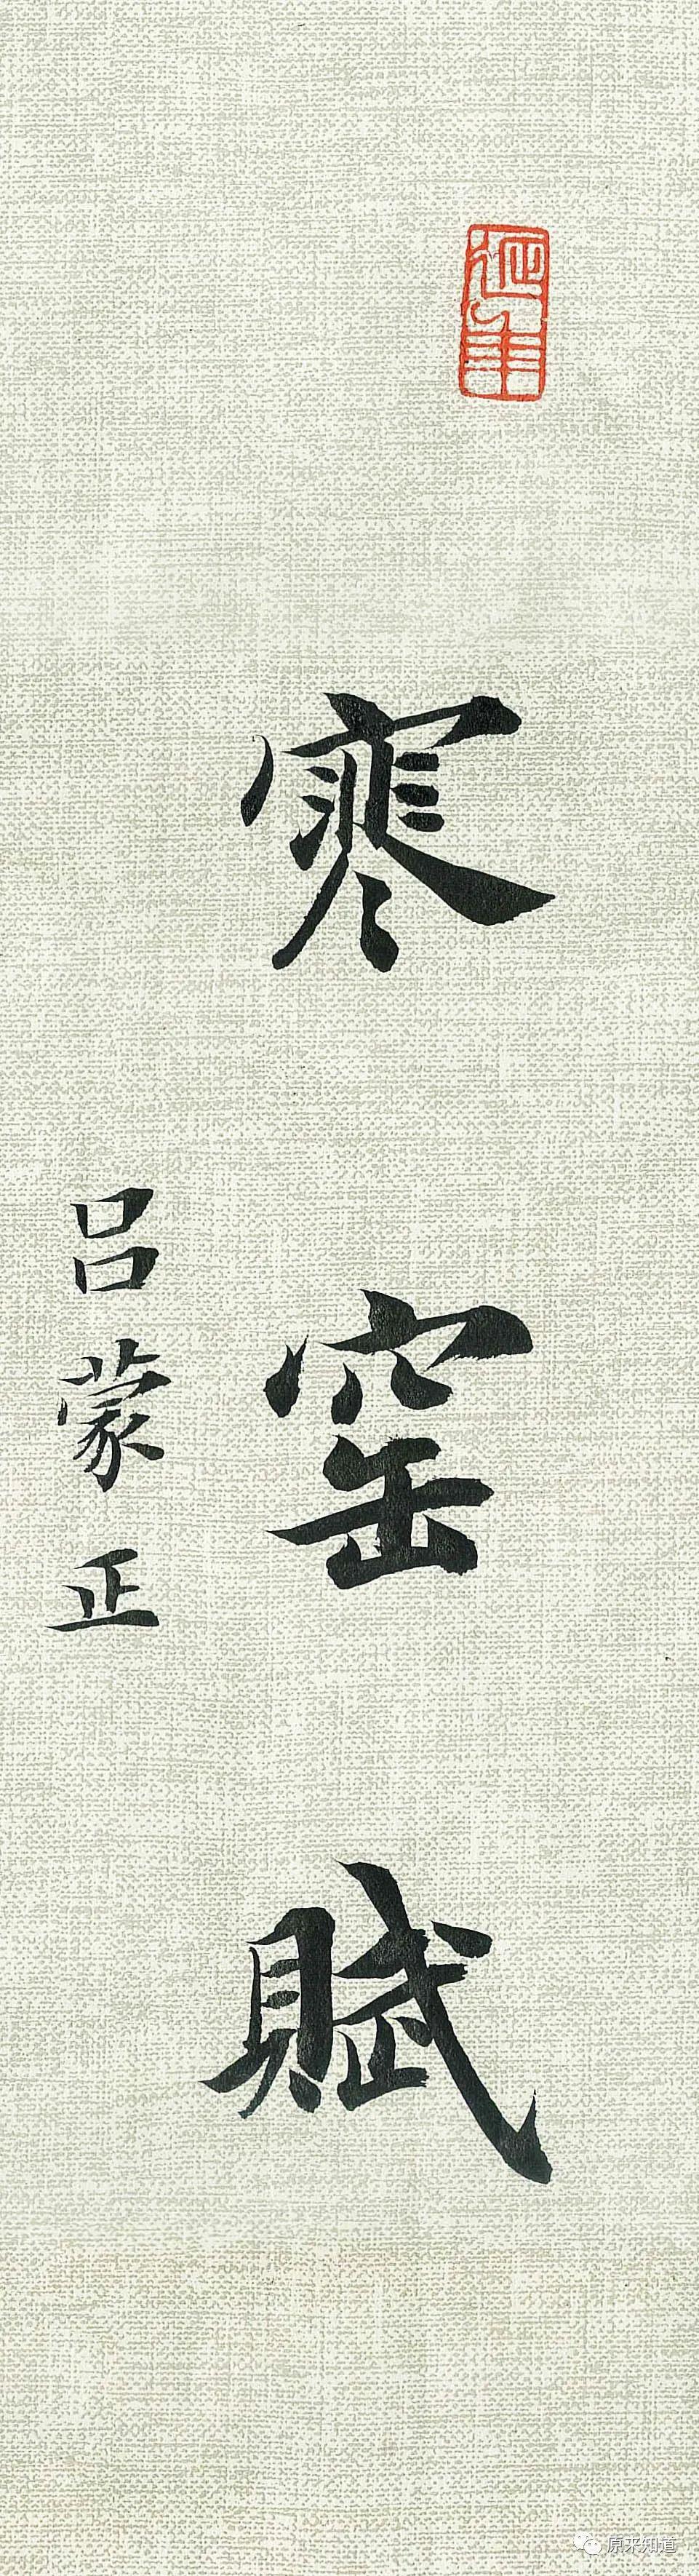 寒窑賦
吕蒙正
延年
原来知道